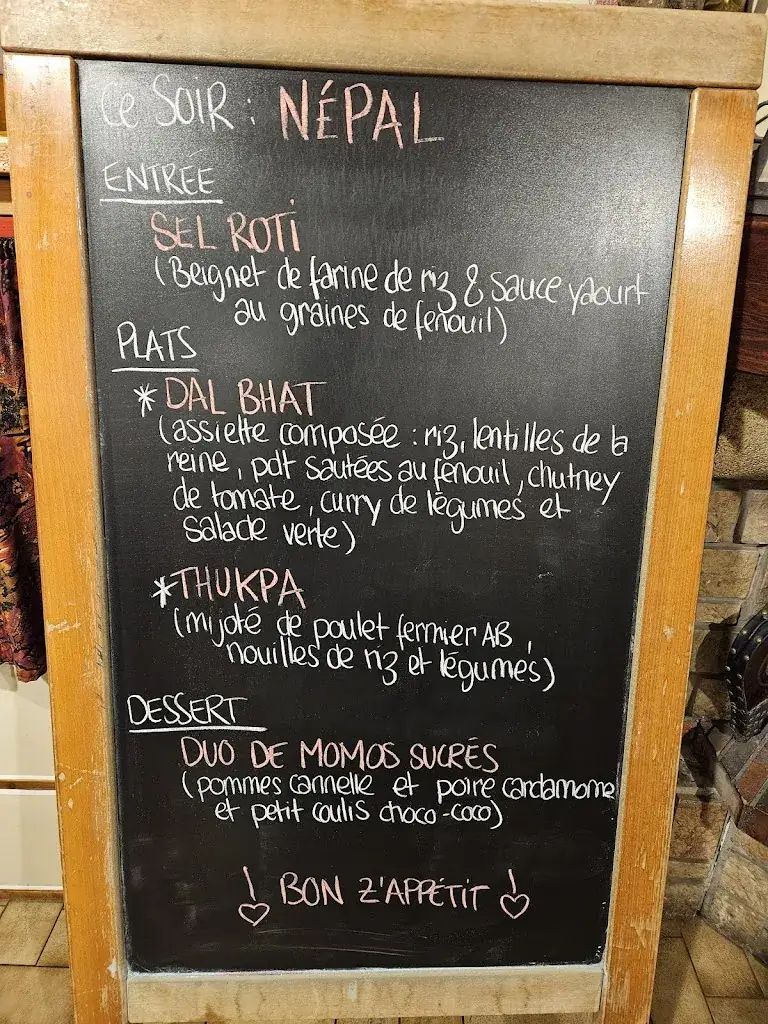 Ce SOIR : NÉPAL
ENTRÉE
SEL ROTI
(Beignet de farine de riz & sauce yaourt
au graines de fenouil)
PLATS
* DAL BHAT
(assiette composée : riz, lentilles de la
reine, pdt sautées au fenouil, chutney
de tomate, curry de légumes et
salade verte)
* THUKPA
(mijoté de poulet fermier AB,
nouilles de riz et légumes)
DESSERT
DUO DE MOMOS SUCRÉS
(pommes cannelle et poire cardamome
et petit coulis choco-coco)
! BON Z'APPÉTIT !